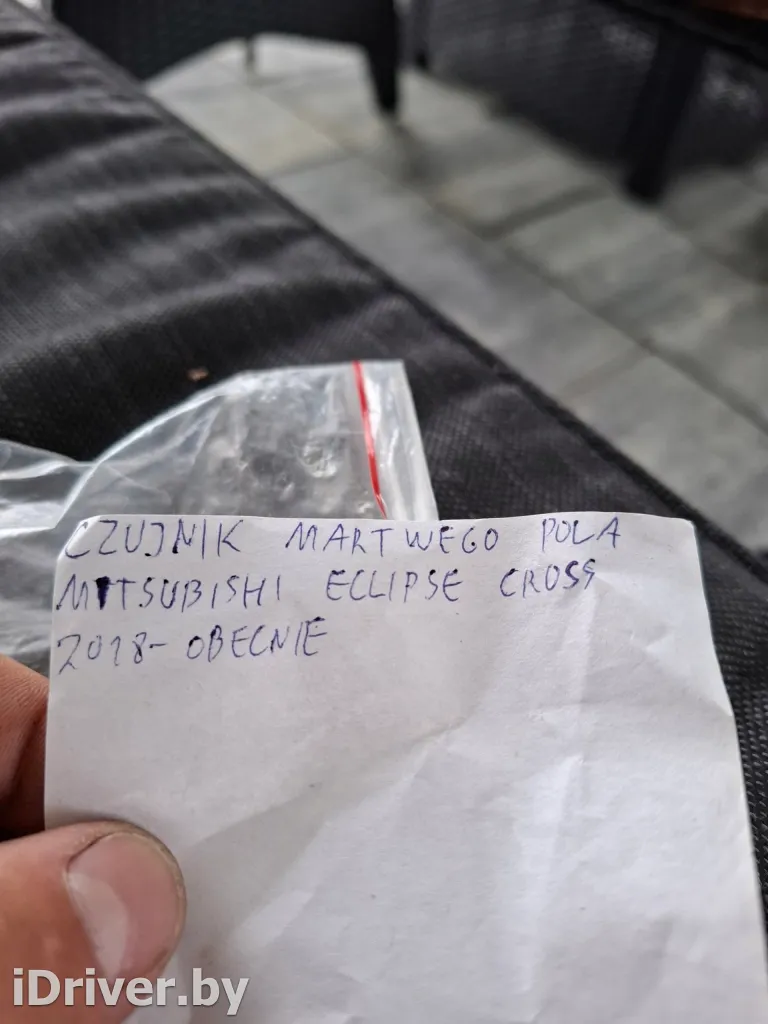 CZUJNIK MARTWEGO POLA
MITSUBISHI ECLIPSE CROSS
2018- OBECNIE
iDriver.by